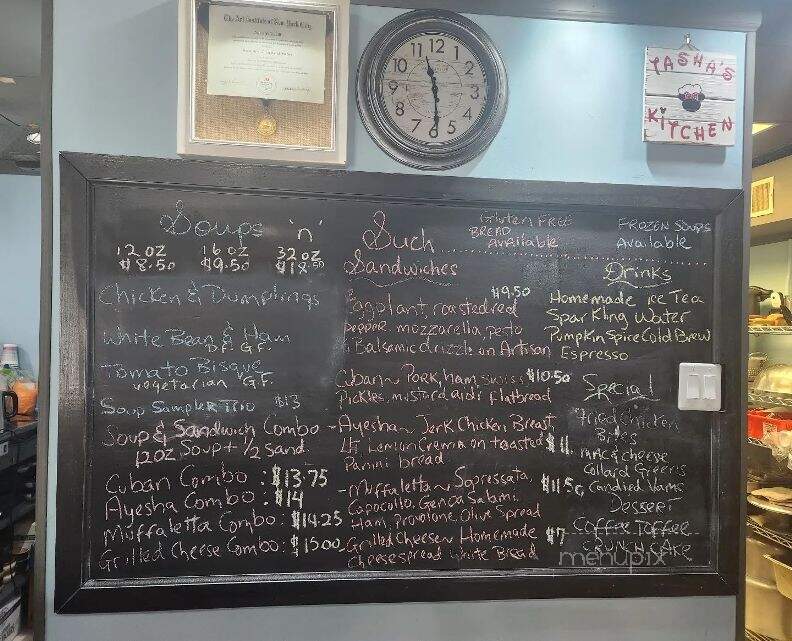 The Art Institute of New York City
TASHA'S
KITCHEN
12 1 2 3 4 5 6 7 8 9 10 11
Soups 'n' Such
Gluten Free
BREAD
Available
FROZEN SOUPS
Available
12 oz 16 oz 32 oz
$8.50 $9.50 $18.50
Chicken & Dumplings
White Bean & Ham
D.F. G.F.
Tomato Bisque
vegetarian G.F.
Soup Sampler Trio $13
Soup & Sandwich Combo
12oz Soup + 1/2 Sand.
Cuban Combo: $13.75
Ayesha Combo: $14
Muffaletta Combo: $14.25
Grilled Cheese Combo: $15.00
Sandwiches
$9.50
Eggplant, roasted red
pepper mozzarella, pesto
& Balsamic drizzle on Artisan
Cuban ~ Pork, ham, swiss $10.50
Pickles, mustard aioli flatbread
~ Ayesha ~ Jerk Chicken Breast
Lemon Crema on toasted $11
Panini bread
~ Muffaletta ~ Sopressata, $11.50
Capocollo, Genoa Salami
Ham, provolone, Olive Spread
Grilled Cheese ~ Homemade $7
Cheesespread White Bread
Drinks
Homemade ice Tea
Sparkling Water
Pumpkin Spice Cold Brew
Espresso
Special
Fried Chicken
Bites
Mac & Cheese
Collard Greens
Candied Yams
Dessert
Coffee Toffee
CRUNCH CAKE
menupix